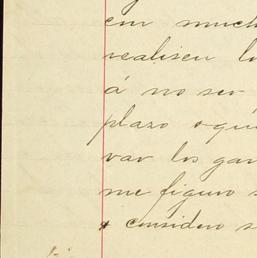 en much
realisen lo
á no ser
plazo
var los gan
me figuro s
considero s